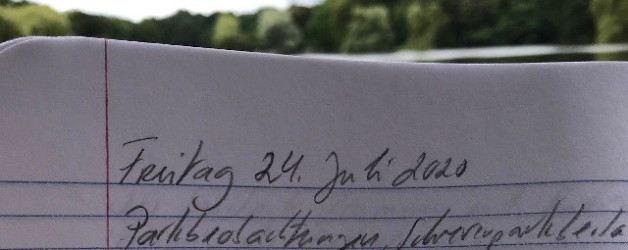 Freitag 24. Juli 2020
Parkbeobachtungen,